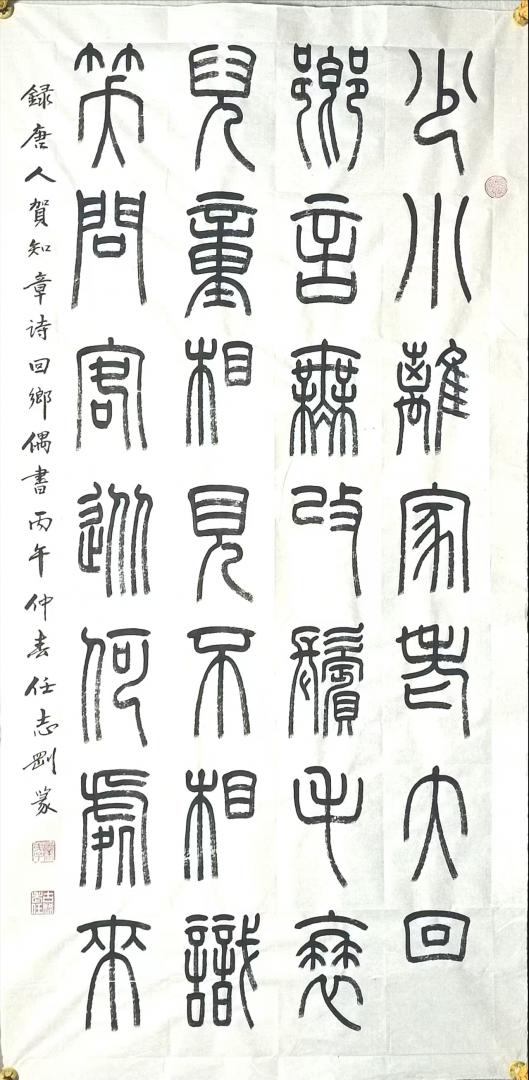 少小離家老大回
鄉音無改鬢毛衰
兒童相見不相識
笑問客從何處來
録唐人賀知章詩回鄉偶書丙午仲春任志剛篆